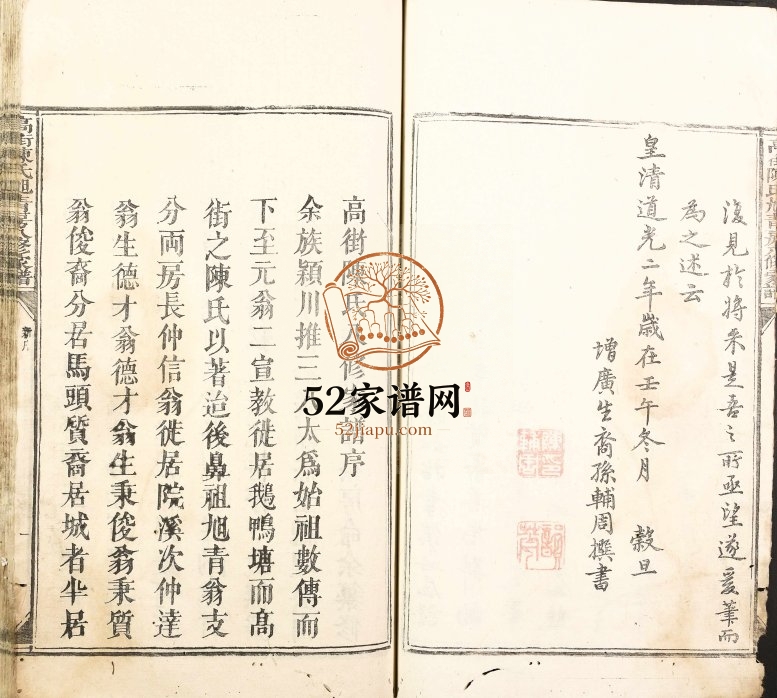 復見於將来是吾之所亟望遂爰筆而
為之述云
皇清道光二年歲在壬午冬月 穀旦
增廣生裔孫輔周撰書
高街陳氏 修 譜序
余族潁川推三 太爲始祖數傳而
下至元翁二宣教徙居鵝鴨塘而高
街之陳氏以著迨後鼻祖旭青翁支
分兩房長仲信翁徙居院溪次仲達
翁生德才翁德才翁生秉俊翁秉質
翁俊裔分居馬頭質裔居城者半居
52家谱网
52jiapu.com